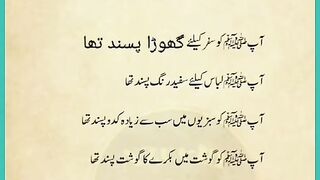 آپ ﷺ کو سفر کیلئے گھوڑا پسند تھا
آپ ﷺ لباس کیلئے سفید رنگ پسند تھا
آپ ﷺ کو سبزیوں میں سب سے زیادہ کدو پسند تھا
آپ ﷺ کو گوشت میں بکرے کا گوشت پسند تھا